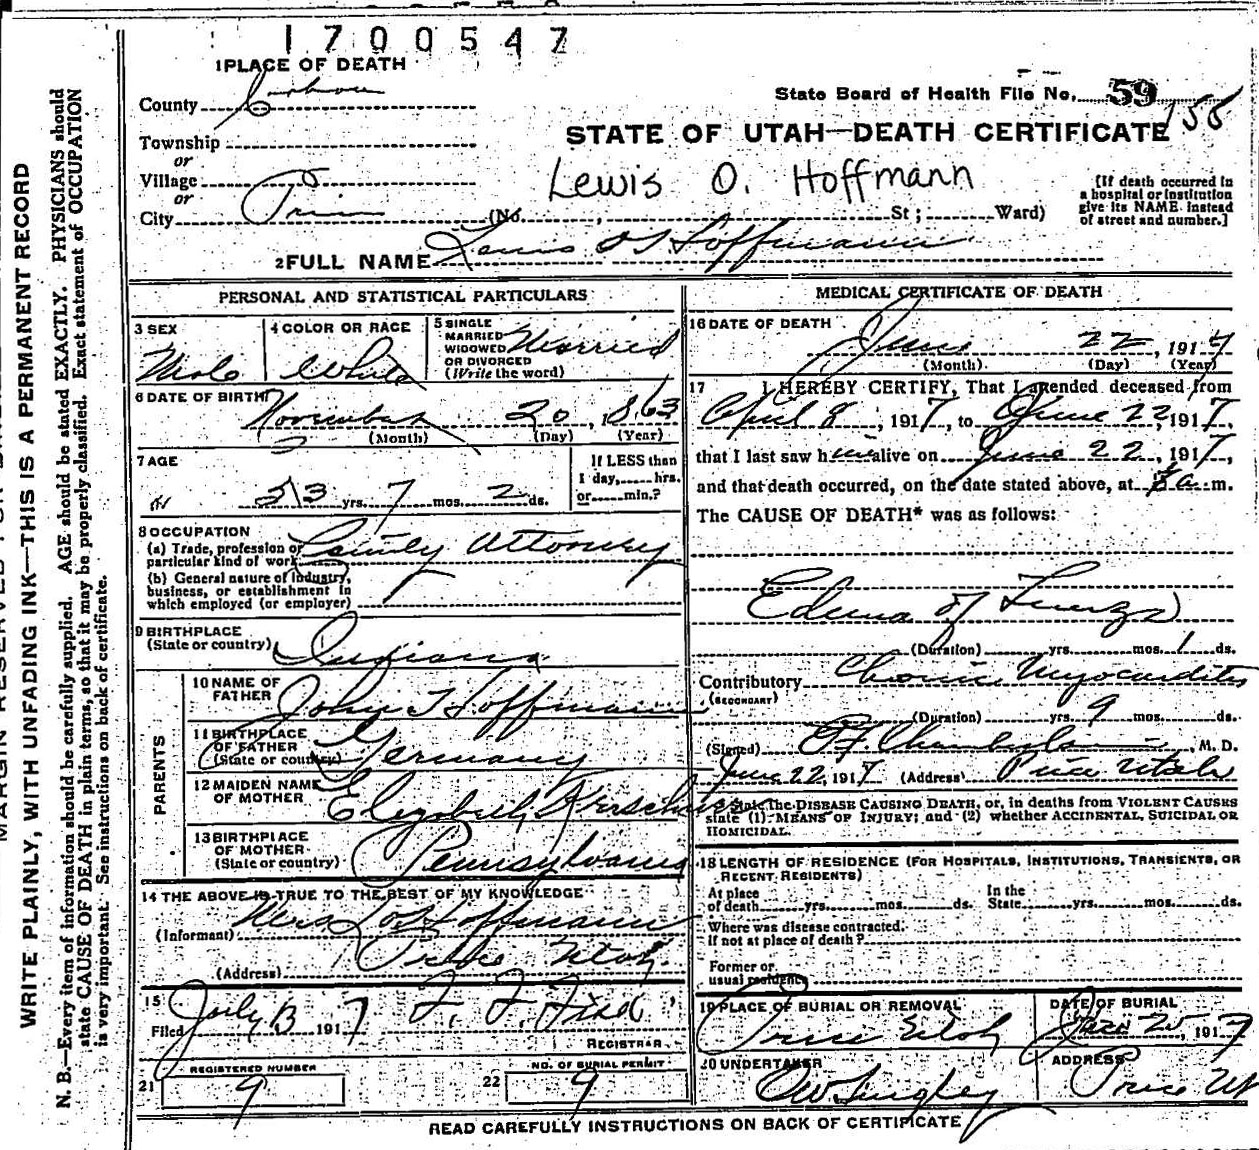 1700547
1 PLACE OF DEATH
County Carbon
State Board of Health File No. 59
158
Township
or
STATE OF UTAH—DEATH CERTIFICATE
Village
or
Lewis O. Hoffmann
City Price (No. , St ; Ward)
[If death occurred in
a hospital or institution
give its NAME instead
of street and number.]
2 FULL NAME Lewis O. Hoffmann
PERSONAL AND STATISTICAL PARTICULARS
3 SEX
Male
4 COLOR OR RACE
White
5 SINGLE
MARRIED
WIDOWED
OR DIVORCED
(Write the word)
Married
6 DATE OF BIRTH
November 20, 1863
(Month) (Day) (Year)
7 AGE
53 yrs. 7 mos. 2 ds.
If LESS than
1 day, hrs.
or min.?
8 OCCUPATION
(a) Trade, profession or
particular kind of work County Attorney
(b) General nature of industry,
business, or establishment in
which employed (or employer)
9 BIRTHPLACE
(State or country) Indiana
PARENTS
10 NAME OF
FATHER John Hoffmann
11 BIRTHPLACE
OF FATHER
(State or country) Germany
12 MAIDEN NAME
OF MOTHER Elizabeth
13 BIRTHPLACE
OF MOTHER
(State or country) Pennsylvania
14 THE ABOVE IS TRUE TO THE BEST OF MY KNOWLEDGE
(Informant) Mrs L O Hoffmann
(Address) Price Utah.
15
Filed July 13 1917
REGISTRAR
21 REGISTERED NUMBER
9
22 NO. OF BURIAL PERMIT
9
MEDICAL CERTIFICATE OF DEATH
16 DATE OF DEATH
June 22, 1917
(Month) (Day) (Year)
17 I HEREBY CERTIFY, That I attended deceased from
April 8, 1917, to June 22, 1917,
that I last saw him alive on June 22, 1917,
and that death occurred, on the date stated above, at a. m.
The CAUSE OF DEATH* was as follows:
Edema of Lungs
(Duration) yrs. mos. 1 ds.
Contributory Chronic Myocarditis
(SECONDARY)
(Duration) yrs. 9 mos. ds.
(Signed) , M. D.
June 22, 1917 (Address) Price Utah
* State the DISEASE CAUSING DEATH, or, in deaths from VIOLENT CAUSES
state (1) MEANS OF INJURY; and (2) whether ACCIDENTAL, SUICIDAL OR
HOMICIDAL.
18 LENGTH OF RESIDENCE (FOR HOSPITALS, INSTITUTIONS, TRANSIENTS, OR
RECENT RESIDENTS)
At place
of death yrs. mos. ds.
In the
State yrs. mos. ds.
Where was disease contracted.
if not at place of death?
Former or
usual residence
19 PLACE OF BURIAL OR REMOVAL
Price Utah
DATE OF BURIAL
1917
20 UNDERTAKER
ADDRESS
Price Ut
READ CAREFULLY INSTRUCTIONS ON BACK OF CERTIFICATE
WRITE PLAINLY, WITH UNFADING INK—THIS IS A PERMANENT RECORD
N. B.—Every item of information should be carefully supplied. AGE should be stated EXACTLY. PHYSICIANS should
state CAUSE OF DEATH in plain terms, so that it may be properly classified. Exact statement of OCCUPATION
is very important. See instructions on back of certificate.